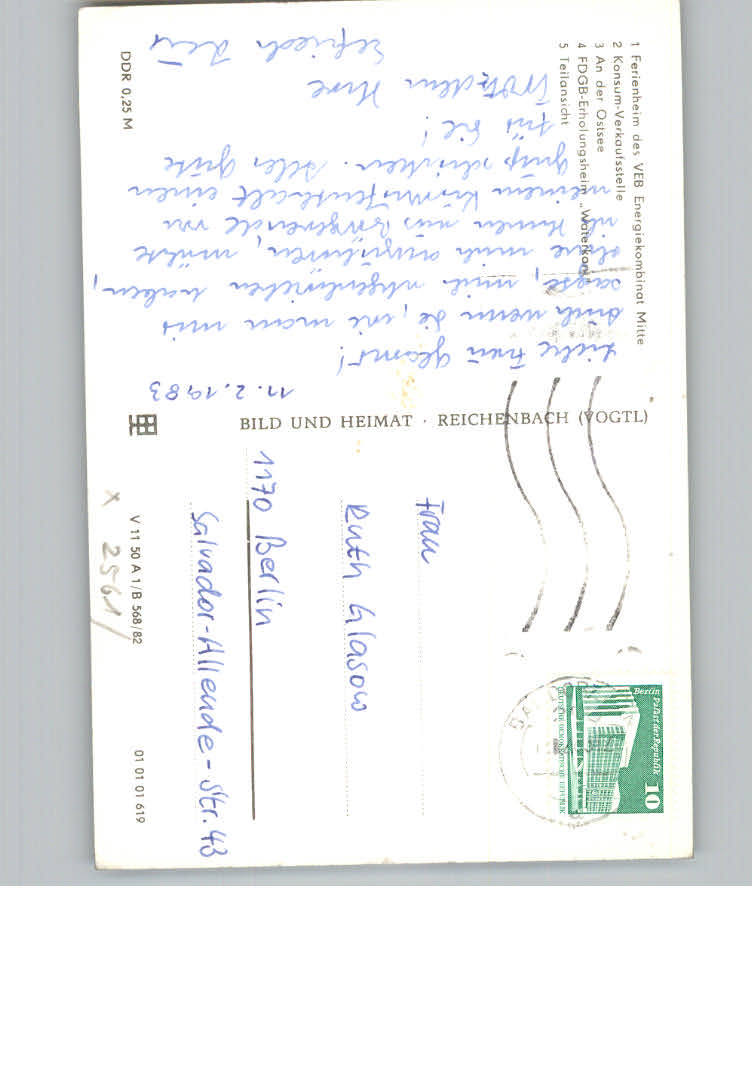 1 Ferienheim des VEB Energiekombinat Mitte
2 Konsum-Verkaufsstelle
3 An der Ostsee
4 FDGB-Erholungsheim „Waterkant"
5 Teilansicht
DDR 0,25 M
11.2.1983
Liebe Frau Glasow!
Auch wenn Sie, wie man mir
sagte, mich abgeschrieben haben,
ohne mich anzuhören, möchte
ich Ihnen aus
meinem Kuraufenthalt einen
Gruß schicken. Alles Gute
für Sie!
Trotzdem Ihre
BILD UND HEIMAT · REICHENBACH (VOGTL)
V 11 50 A 1/B 568/82
01 01 01 619
x 2561/
Frau
Ruth Glasow
1170 Berlin
Salvador-Allende-Str. 43
Berlin Palast der Republik
10
DEUTSCHE DEMOKRATISCHE REPUBLIK